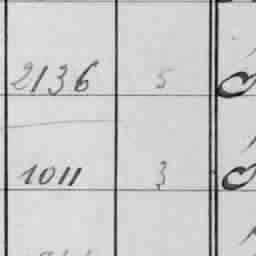 2136 5
1011 3